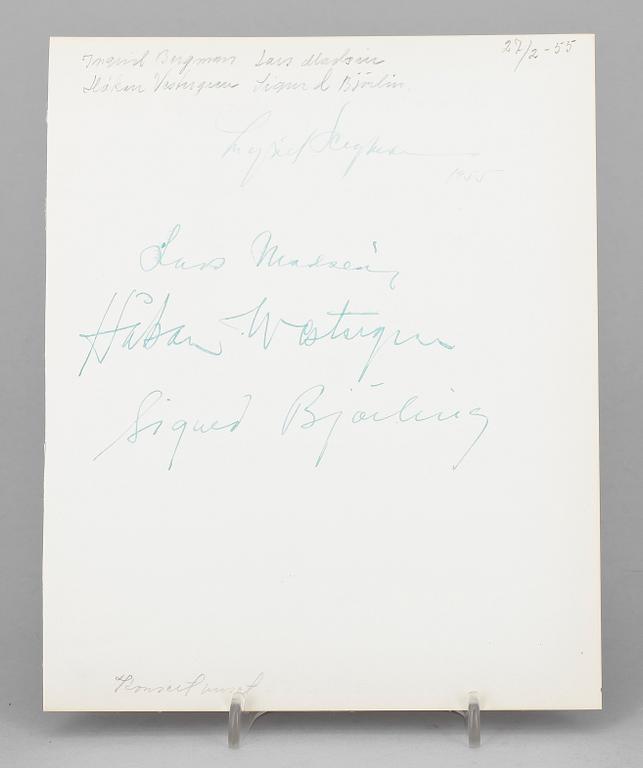 Ingrid Bergman Lars Madsén 27/2-55
Håkan Westergren Sigurd Björlin
Ingrid Bergman
1955
Lars Madsén
Håkan Westergren
Sigurd Björling
Konserthuset